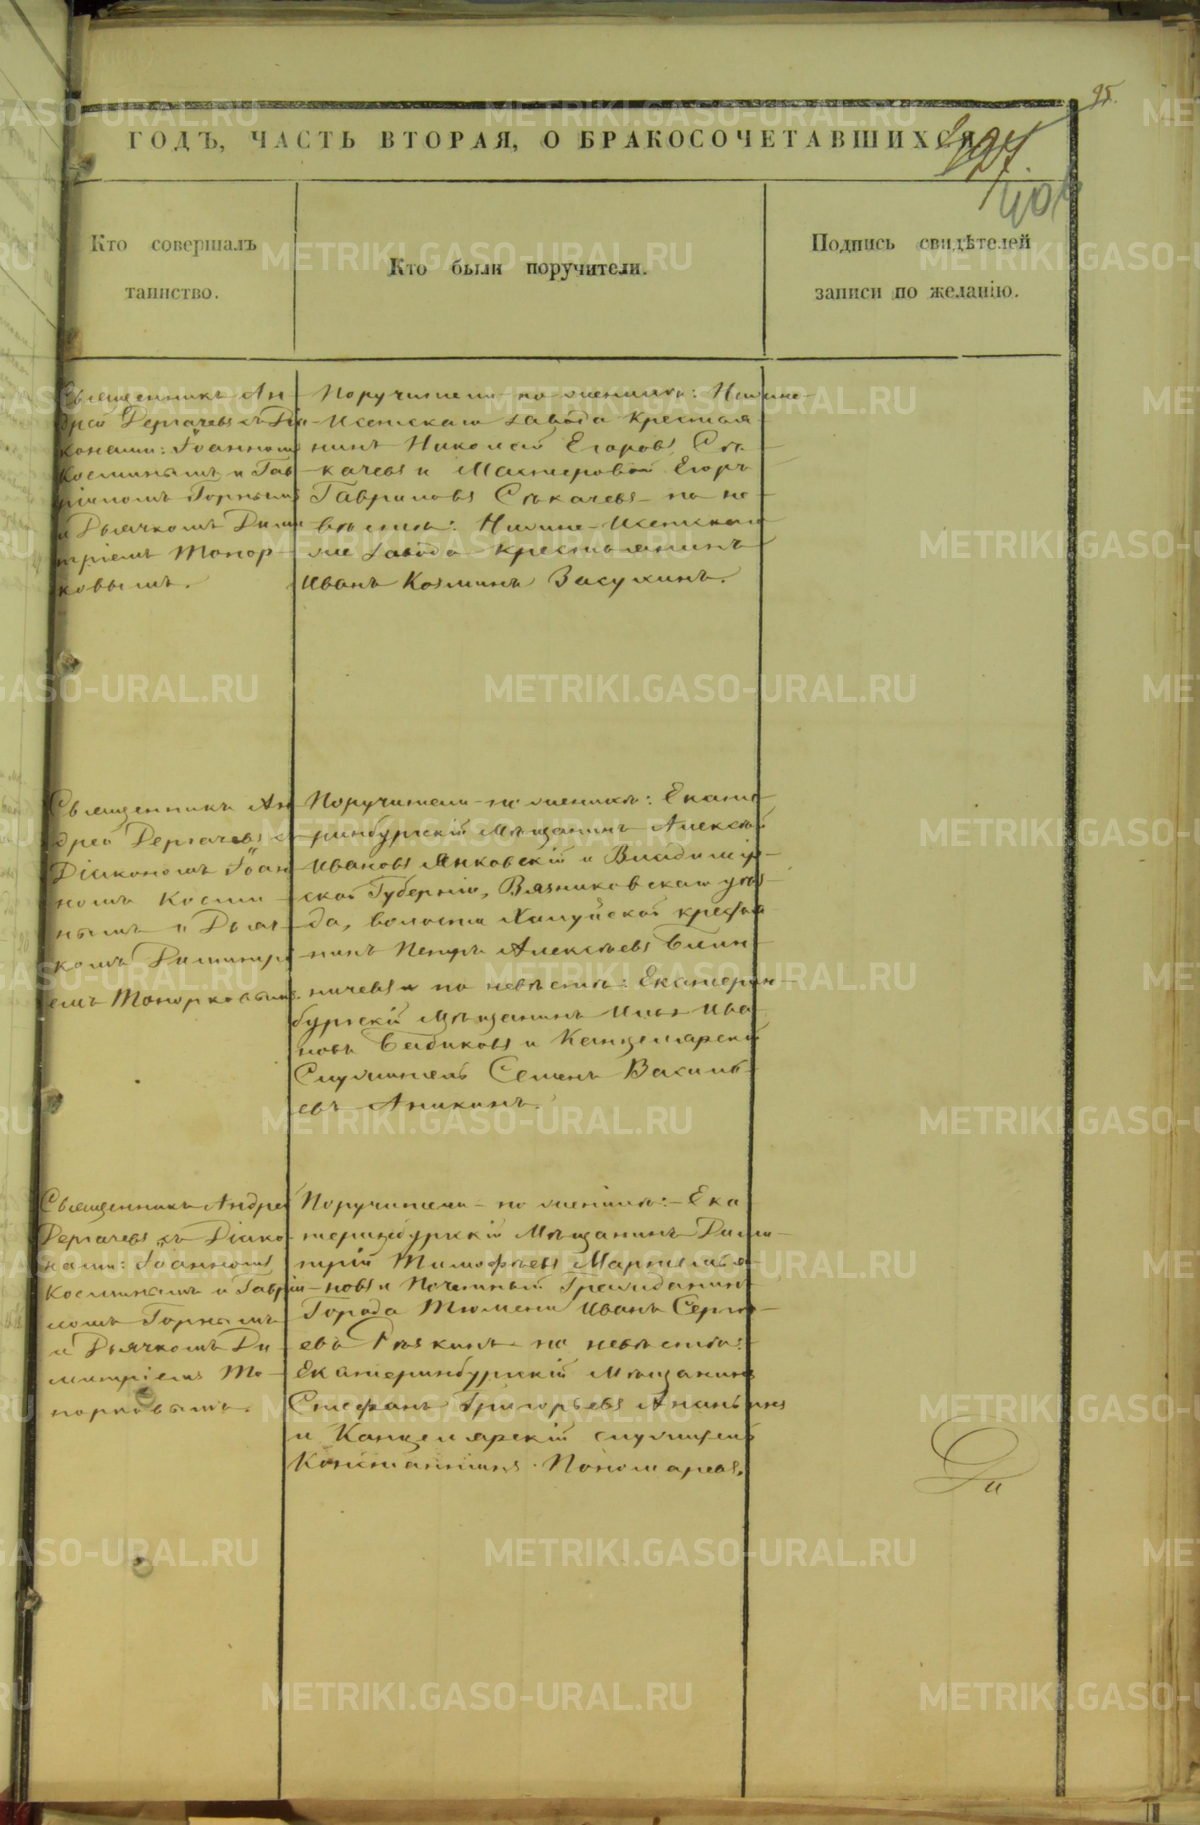 95.
ГОДЪ, ЧАСТЬ ВТОРАЯ, О БРАКОСОЧЕТАВШИХСЯ
Кто совершалъ
таинство.
Кто были поручители.
Подпись свидѣтелей
записи по желанію.
Священникъ Ан-
дрей Дергачевъ съ Діа-
конами: Іоанномъ
Косминымъ и Гав-
ріиломъ Горнымъ
и Дьячкомъ Дими-
тріемъ Топор-
ковымъ.
Поручители по женихѣ: Нижне-
Исетскаго завода крестья-
нинъ Николай Егоровъ Сѣ-
качевъ и Мастеровой Егоръ
Гавриловъ Сѣкачевъ по не-
вѣстѣ: Нижне-Исетскаго
же завода крестьянинъ
Иванъ Козминъ Засухинъ.
Священникъ Ан-
дрей Дергачевъ съ
Діакономъ Іоан-
номъ Косми-
нымъ и Дьяч-
комъ Димитрі-
емъ Топорковымъ.
Поручители по женихѣ: Екате-
ринбургскій Мѣщанинъ Алексѣй
Ивановъ Янковскій и Владимір-
ской Губерніи, Вязниковскаго уѣз-
да, волости Холуйской крестья-
нинъ Петръ Алексѣевъ Блин-
ничевъ и по невѣстѣ: Екатерин-
бургскій Мѣщанинъ Илья Ива-
новъ Бабиковъ и Канцелярскій
Служитель Семенъ Василь-
евъ Аникинъ.
Священникъ Андрей
Дергачевъ съ Діако-
нами: Іоанномъ
Косминымъ и Гаврі-
ломъ Горнымъ
и Дьячкомъ Ди-
митріемъ То-
порковымъ.
Поручители по женихѣ: Ека-
теринбургскій Мѣщанинъ Дими-
трій Тимофѣевъ
новъ и Почетный Гражданинъ
Города Тюмени Иванъ Серге-
евъ по невѣстѣ:
Екатеринбургскій Мѣщанинъ
Стефанъ Григорьевъ Ананьинъ
и Канцелярскій служитель
Константинъ Пономаревъ.
Ди
METRIKI.GASO-URAL.RU